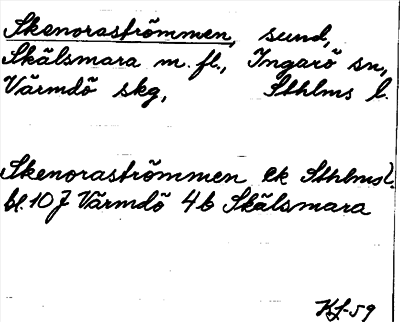 Skenoraströmmen, sund,
Skälsmara m. fl., Ingarö sn,
Värmdö skg, Sthlms l.
Skenoraströmmen ek Sthlms l.
bl. 107 Värmdö 4b Skälsmara
KJ-59